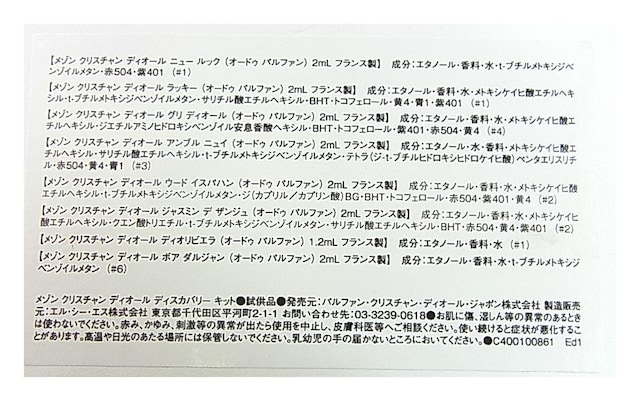 【メゾン クリスチャン ディオール ニュー ルック （オードゥ パルファン） 2mL フランス製】 成分：エタノール・香料・水・t-ブチルメトキシジベ
ンゾイルメタン・赤504・紫401 （#1）
【メゾン クリスチャン ディオール ラッキー （オードゥ パルファン） 2mL フランス製】 成分：エタノール・香料・水・メトキシケイヒ酸エチルヘキ
シル・t-ブチルメトキシジベンゾイルメタン・サリチル酸エチルヘキシル・BHT・トコフェロール・黄4・青1・紫401 （#1）
【メゾン クリスチャン ディオール グリ ディオール （オードゥ パルファン） 2mL フランス製】 成分：エタノール・香料・水・メトキシケイヒ酸エ
チルヘキシル・ジエチルアミノヒドロキシベンゾイル安息香酸ヘキシル・BHT・トコフェロール・紫401・赤504・黄4 （#4）
【メゾン クリスチャン ディオール アンブル ニュイ （オードゥ パルファン） 2mL フランス製】 成分：エタノール・香料・水・メトキシケイヒ酸エチ
ルヘキシル・サリチル酸エチルヘキシル・t-ブチルメトキシジベンゾイルメタン・テトラ（ジ-t-ブチルヒドロキシヒドロケイヒ酸）ペンタエリスリチ
ル・赤504・黄4・青1 （#3）
【メゾン クリスチャン ディオール ウード イスパハン （オードゥ パルファン） 2mL フランス製】 成分：エタノール・香料・水・メトキシケイヒ酸
エチルヘキシル・t-ブチルメトキシジベンゾイルメタン・ジ（カプリル/カプリン酸）BG・BHT・トコフェロール・赤504・紫401・黄4 （#2）
【メゾン クリスチャン ディオール ジャスミン デ ザンジュ （オードゥ パルファン） 2mL フランス製】 成分：エタノール・香料・水・メトキシケイヒ
酸エチルヘキシル・クエン酸トリエチル・t-ブチルメトキシジベンゾイルメタン・サリチル酸エチルヘキシル・BHT・赤504・黄4・紫401 （#2）
【メゾン クリスチャン ディオール ディオリビエラ （オードゥ パルファン） 1.2mL フランス製】 成分：エタノール・香料・水 （#1）
【メゾン クリスチャン ディオール ボア ダルジャン （オードゥ パルファン） 2mL フランス製】 成分：エタノール・香料・水・t-ブチルメトキシジ
ベンゾイルメタン （#6）
メゾン クリスチャン ディオール ディスカバリー キット●試供品●発売元：パルファン・クリスチャン・ディオール・ジャポン株式会社 製造販売
元：エル・シー・エス株式会社 東京都千代田区平河町2-1-1 お問い合わせ先：03-3239-0618●お肌に傷、湿しん等の異常のあるとき
は使わないでください。赤み、かゆみ、刺激等の異常が出たら使用を中止し、皮膚科医等へご相談ください。使い続けると症状が悪化するこ
とがあります。高温や日光のあたる場所には保管しないでください。乳幼児の手の届かないところにおいてください。●C400100861 Ed1